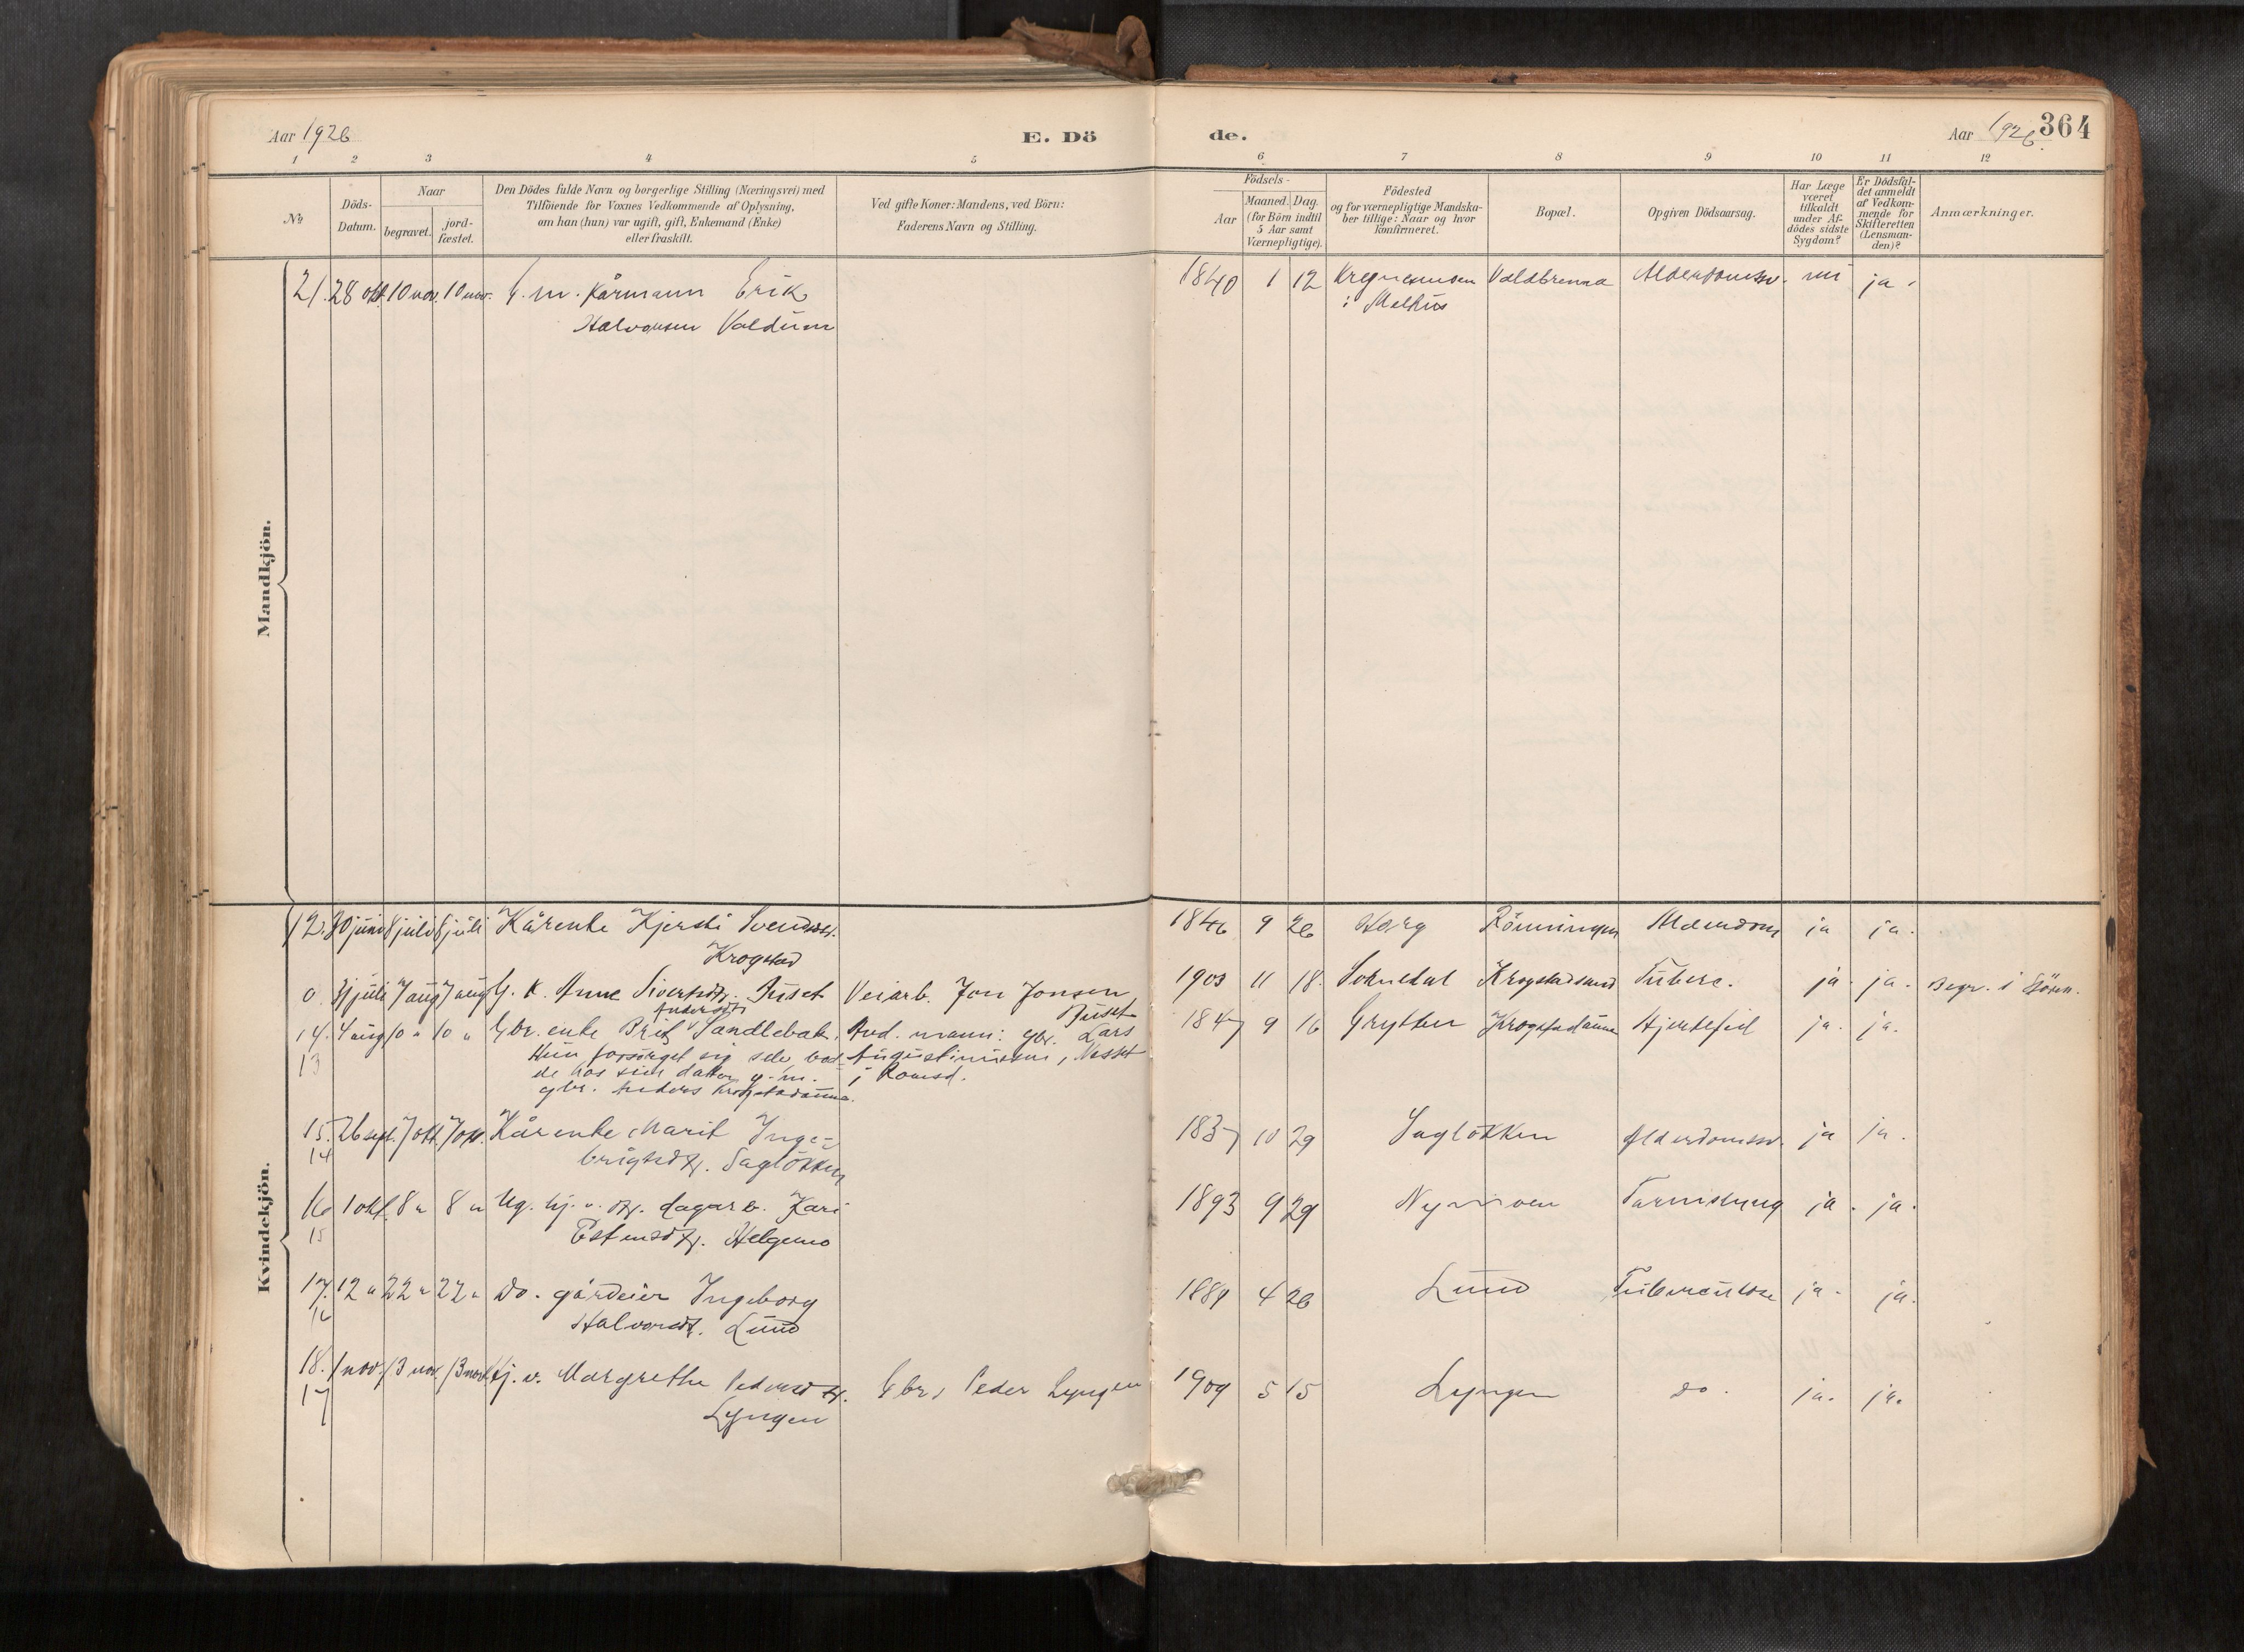 Aar 1926
E. Dö
de.
Aar 1926.
364
1 2 3 4 5 6 7 8 9 10 11 12
№
Döds-
Datum.
Naar
begravet.
jord-
fæstet.
Den Dödes fulde Navn og borgerlige Stilling (Næringsvei) med
Tilföiende for Voxnes Vedkommende af Oplysning,
om han (hun) var ugift, gift, Enkemand (Enke)
eller fraskilt.
Ved gifte Koner: Mandens, ved Börn:
Faderens Navn og Stilling.
Födsels-
Aar
Maaned. Dag.
(for Börn indtil
5 Aar samt
Værnepligtige).
Födested
og for værnepligtige Mandska-
ber tillige: Naar og hvor
konfirmeret.
Bopæl.
Opgiven Dödsaarsag.
Har Læge
været
tilkaldt
under Af-
dödes sidste
Sygdom?
Er Dödsfal-
det anmeldt
af Vedkom-
mende for
Skifteretten
(Lensman-
den)?
Anmærkninger.
Mandkjön.
21. 28 okt. 10 nov. 10 nov. G. m. kårmann Erik 1840 1 12 Valdbrenna Alderdomssv. nei ja.
Halvorsen Valdum i Melhus
Kvindekjön.
12. 30 juni 8 juli 8 juli Kårenke Kjersti Svendsd. 1846 9 26 Horg Rönningen Alderdom ja ja.
Krogstad
0 31 juli 7 aug 7 aug G. k. Anne Sivertsdtr. Buset Veiarb. Jon Jonsen 1903 11 18. Soknedal Krogstadsand Tuberc. ja. ja. Begr. i Sören.
Andersdtr Buset
14. 4 aug 10 " 10 " Gbr. enke Brit Sandlebak. Avd. mann: gbr. Lars 1847 9 16 Grytten Krogstadaune Hjertefeil ja. ja.
13 Hun forsörget sig selv bod- Augustinussen, Nesset
de hos sin datter g. m. i Romsd.
gbr. Anders Krogstadaune.
15. 26 sept. 7 okt. 7 okt. Kårenke Marit Inge- 1837 10 29 Laglökken Alderdomssv. ja ja.
14 brigtsdtr. Saglökken
16 1 okt. 8 " 8 " Ug. hj. v. dtr. dagarb. Kari 1893 9 29 Nymoen Tarmslyng ja. ja.
15 Estensdtr. Helgemo
17. 12 " 22 " 22 " Do. gårdeier Ingeborg 1889 4 26 Lund Tuberculose ja. ja.
16 Halvorsdt. Lund
18. 1 nov. 13 nov. 13 nov. Hj. v. Margrethe Pedersdtr. Gbr. Peder Lyngen 1909 5 15 Lyngen do. ja. ja.
17 Lyngen